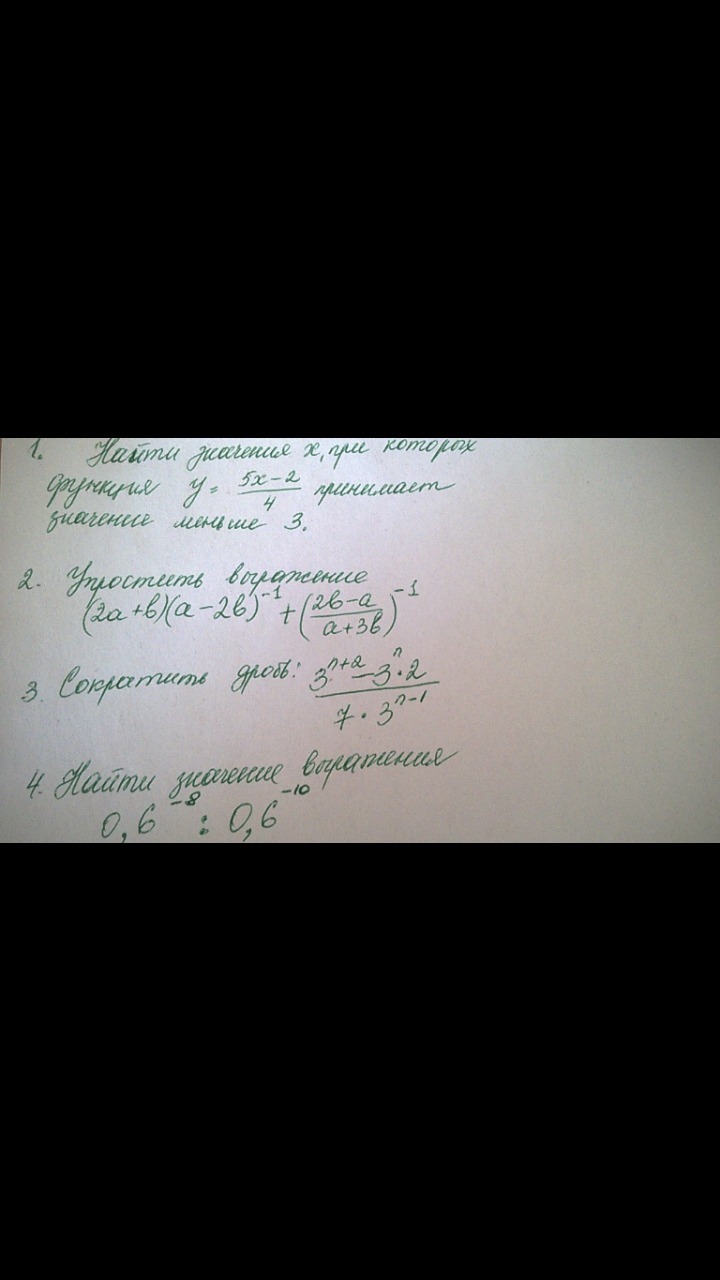 1. Найти значения x, при которых
функция y = \frac{5x-2}{4} принимает
значение меньше 3.
2. Упростить выражение
(2a+b)(a-2b)^{-1} + (\frac{2b-a}{a+3b})^{-1}
3. Сократить дробь: \frac{3^{n+2}-3^{n}·2}{7·3^{n-1}}
4. Найти значение выражения
0,6^{-8} : 0,6^{-10}